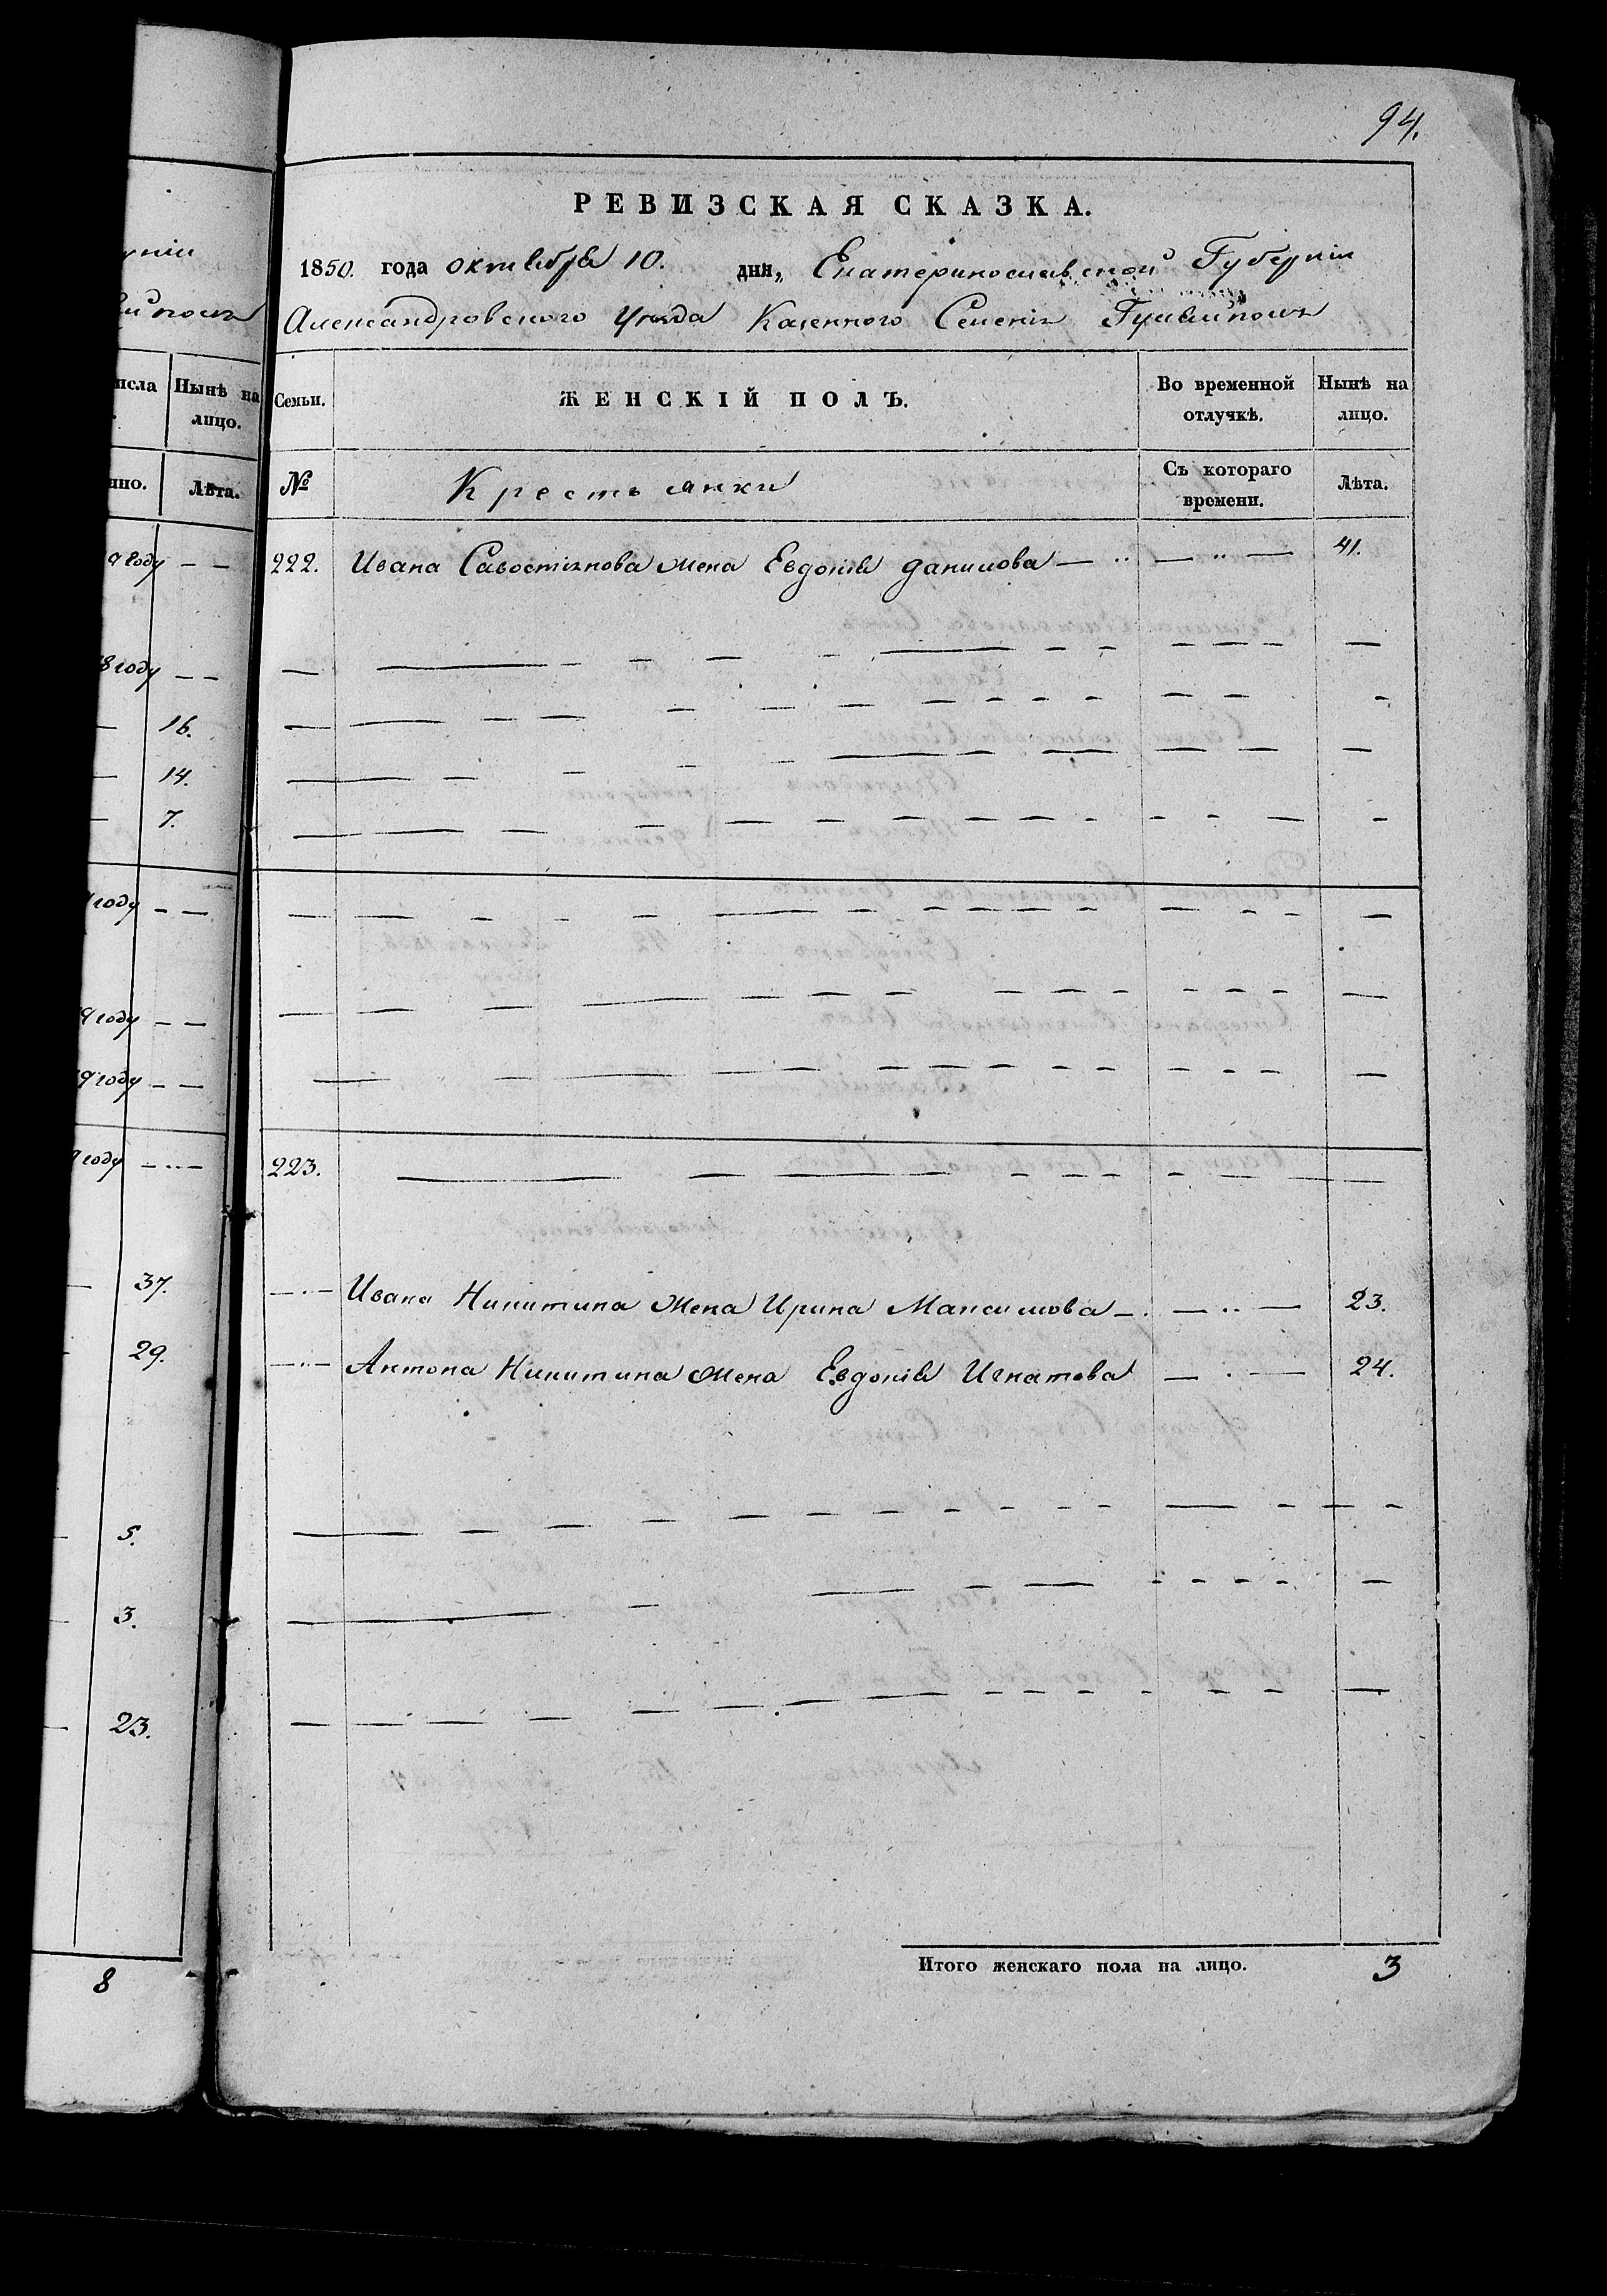 94.
РЕВИЗСКАЯ СКАЗКА.
1850. года октября 10. дня, Екатеринославской Губерніи
Александровского Уезда Казенного Селенія Гуляйполя
Семьи.
ЖЕНСКІЙ ПОЛЪ.
Во временной отлучкѣ.
Нынѣ на лицо.
№
Крестьянки
Съ котораго времени.
Лѣта.
222. Ивана Савостіянова жена Евдокія Данилова — „ — „ — 41.
223.
Ивана Никитина Жена Ирина Максимова — 23.
Антона Никитина жена Евдокія Игнатова — 24.
Итого женскаго пола на лицо. 3
Нынѣ на лицо.
Лѣта.
году
году
16.
14.
7.
году
году
году
году
37.
29.
5.
3.
23.
8